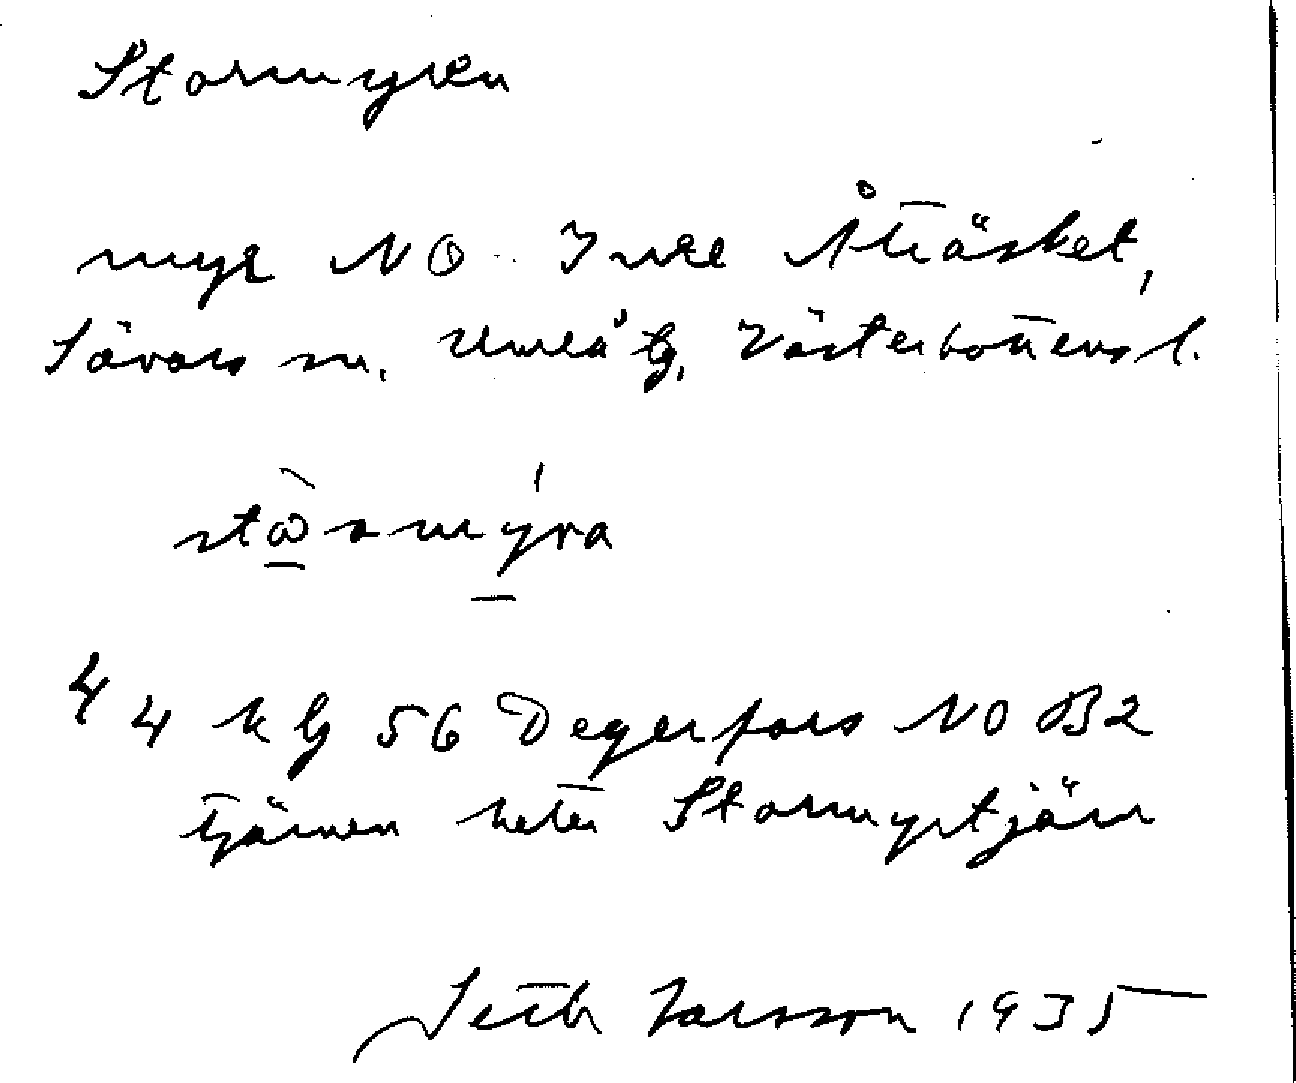 Stormyren
myr NO Inre Åträsket,
Sävars sn. Umeå tg, Västerbottens l.
stωrmýra
4 4 kbl 56 Degerfors NO B2
tjärnen heter Stormyrtjärn
Seth Larsson 1935